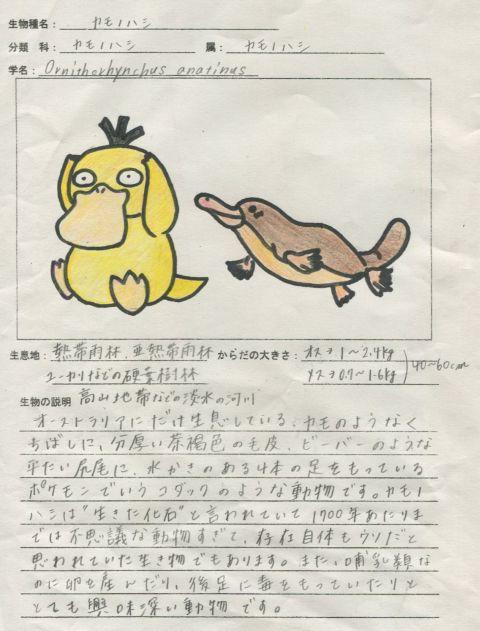 生物種名： カモノハシ
分類 科： カモノハシ 属： カモノハシ
学名： Ornithorhynchus anatinus
生息地： 熱帯雨林、亜熱帯雨林 からだの大きさ： オス→1〜2.4kg
ユーカリなどの硬葉樹林 メス→0.7〜1.6kg 40〜60cm
生物の説明 高山地帯などの淡水の河川
オーストラリアにだけ生息している、カモのようなく
ちばしに、分厚い茶褐色の毛皮、ビーバーのような
平たい尻尾に、水かきのある4本の足をもっている
ポケモンでいうコダックのような動物です。カモノ
ハシは"生きた化石"と言われていて1700年あたりま
では不思議な動物すぎて、存在自体もウソだと
思われていた生き物でもあります。また、哺乳類な
のに卵を産んだり、後足に毒をもっていたりと
とても興味深い動物です。